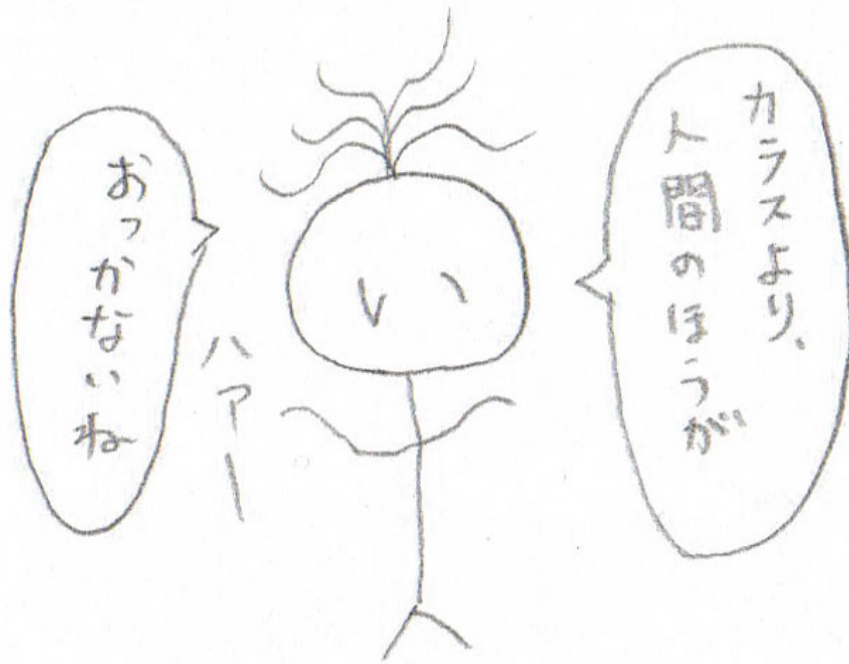 カラスより、
人間のほうが
おっかないね
ハアー